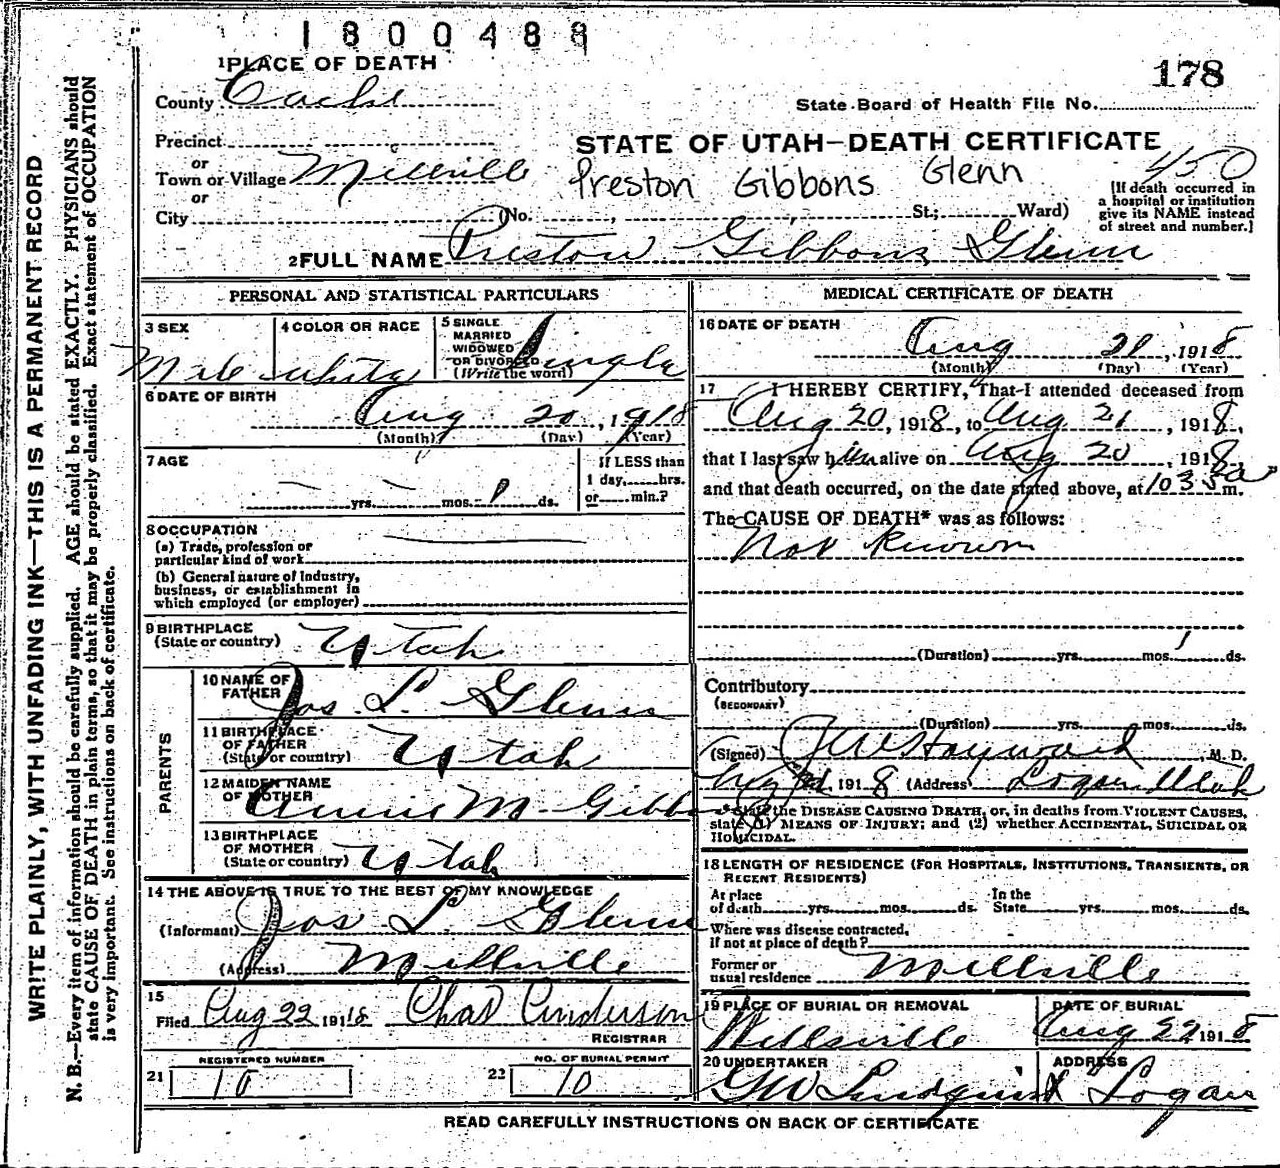 1800488
178
1 PLACE OF DEATH
County Cache
State Board of Health File No.
Precinct
STATE OF UTAH—DEATH CERTIFICATE
or
Town or Village Millville
Preston Gibbons Glenn
450
or
City (No. , St.; Ward)
[If death occurred in
a hospital or institution
give its NAME instead
of street and number.]
2 FULL NAME Preston Gibbons Glenn
PERSONAL AND STATISTICAL PARTICULARS
3 SEX
Male
4 COLOR OR RACE
White
5 SINGLE
MARRIED
WIDOWED
OR DIVORCED
(Write the word)
Single
6 DATE OF BIRTH
Aug 20, 1918
(Month) (Day) (Year)
7 AGE
yrs. mos. 1 ds.
If LESS than
1 day, hrs.
or min.?
8 OCCUPATION
(a) Trade, profession or
particular kind of work
(b) General nature of Industry,
business, or establishment in
which employed (or employer)
9 BIRTHPLACE
(State or country) Utah
PARENTS
10 NAME OF
FATHER Jos. L. Glenn
11 BIRTHPLACE
OF FATHER
(State or country) Utah
12 MAIDEN NAME
OF MOTHER Annie M. Gibbons
13 BIRTHPLACE
OF MOTHER
(State or country) Utah
14 THE ABOVE IS TRUE TO THE BEST OF MY KNOWLEDGE
(Informant) Jos L. Glenn
(Address) Millville
15
Filed Aug 22 1918 Chas Anderson
REGISTRAR
REGISTERED NUMBER
21 10
NO. OF BURIAL PERMIT
23 10
MEDICAL CERTIFICATE OF DEATH
16 DATE OF DEATH
Aug 21, 1918
(Month) (Day) (Year)
17 I HEREBY CERTIFY, That I attended deceased from
Aug 20, 1918, to Aug 21, 1918,
that I last saw him alive on Aug 20, 1918,
and that death occurred, on the date stated above, at 10 35 a m.
The CAUSE OF DEATH* was as follows:
Not known
(Duration) yrs. mos. 1 ds.
Contributory
(SECONDARY)
(Duration) yrs. mos. ds.
(Signed) Hayward, M. D.
1918 (Address) Logan Utah
* State the DISEASE CAUSING DEATH, or, in deaths from VIOLENT CAUSES,
state (1) MEANS OF INJURY; and (2) whether ACCIDENTAL, SUICIDAL OR
HOMICIDAL.
18 LENGTH OF RESIDENCE (FOR HOSPITALS, INSTITUTIONS, TRANSIENTS, OR
RECENT RESIDENTS)
At place
of death yrs. mos. ds.
In the
State yrs. mos. ds.
Where was disease contracted,
if not at place of death?
Former or
usual residence Millville
19 PLACE OF BURIAL OR REMOVAL
Wellsville
DATE OF BURIAL
Aug 22 1918
20 UNDERTAKER
G W Lindquist
ADDRESS
Logan
READ CAREFULLY INSTRUCTIONS ON BACK OF CERTIFICATE
WRITE PLAINLY, WITH UNFADING INK—THIS IS A PERMANENT RECORD
N. B.—Every item of information should be carefully supplied. AGE should be stated EXACTLY. PHYSICIANS should
state CAUSE OF DEATH in plain terms, so that it may be properly classified. Exact statement of OCCUPATION
is very important. See instructions on back of certificate.